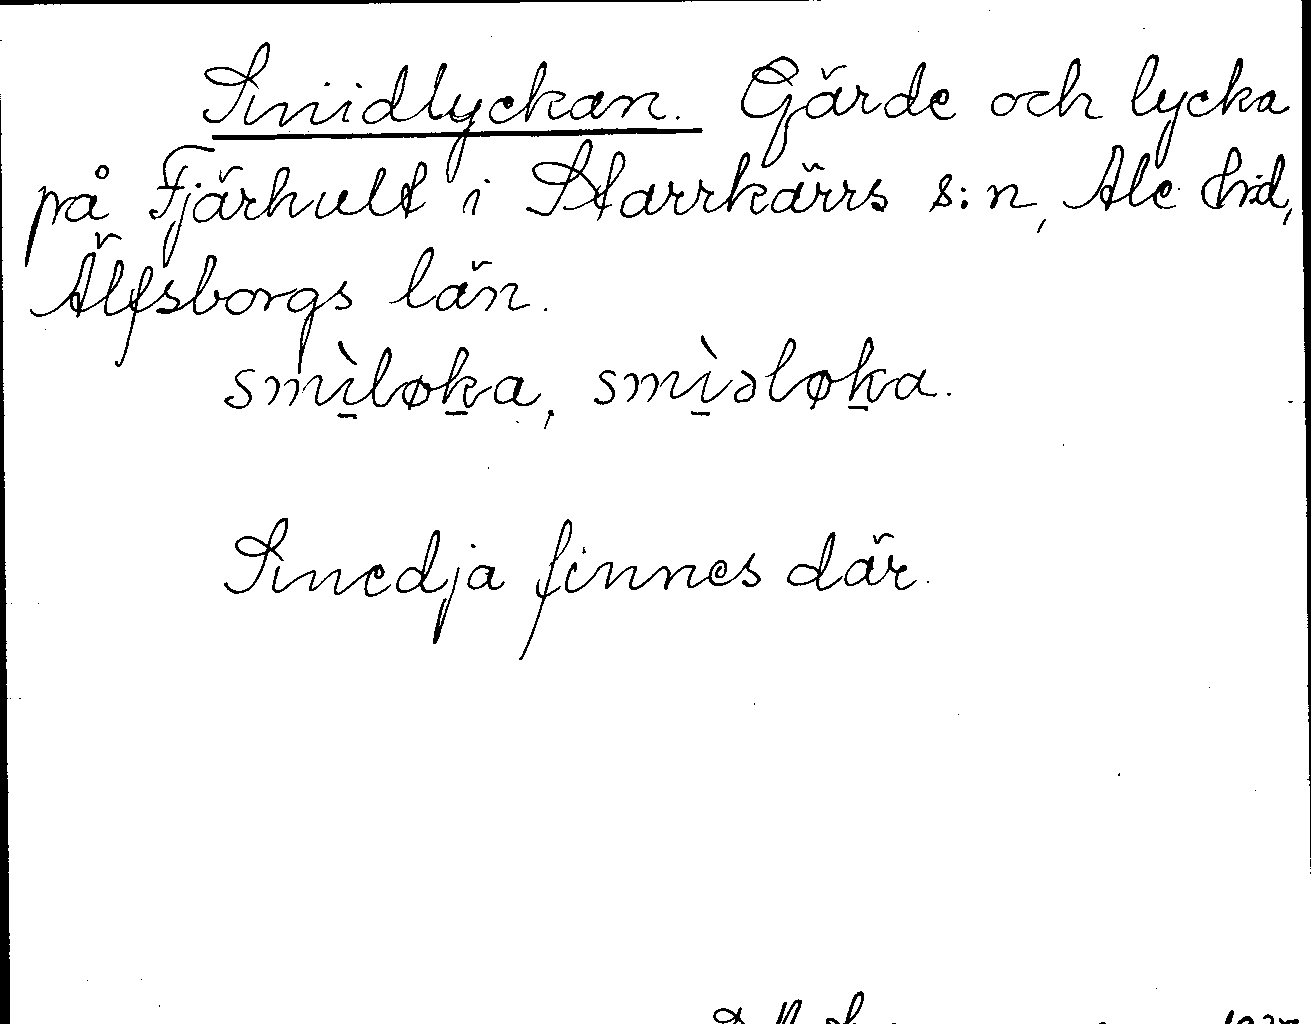 Smidlyckan. Gärde och lycka
på Fjärhult i Starrkärrs s:n, Ale hd,
Älfsborgs län.
smì̱løḵa, smì̱əløḵa.
Smedja finnes där.